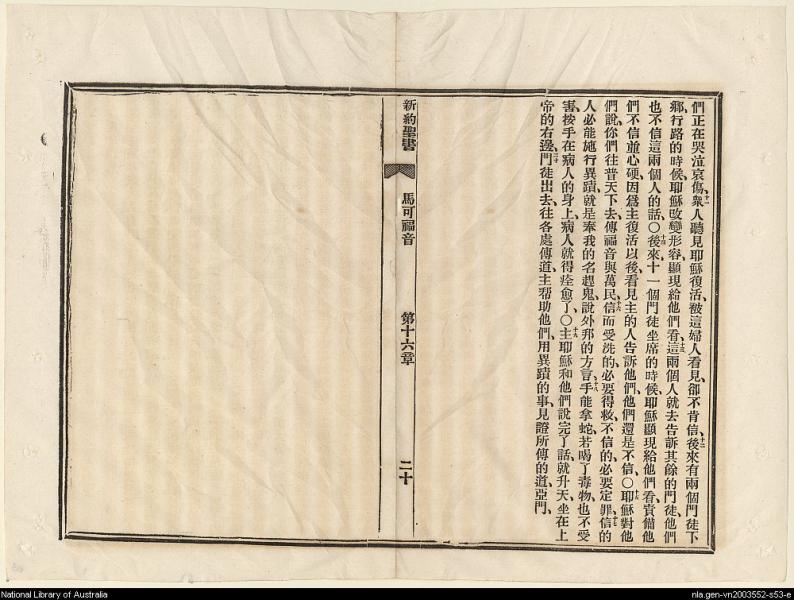 們正在哭泣哀傷、十一衆人聽見耶穌復活、被這婦人看見、卻不肯信、十二後來有兩個門徒下
鄉、行路的時候、耶穌改變形容、顯現給他們看、十三這兩個人就去告訴其餘的門徒、他們
也不信這兩個人的話、○十四後來十一個門徒坐席的時候、耶穌顯現給他們看、責備他
們不信、並心硬、因爲主復活以後、看見主的人告訴他們、他們還是不信、○十五耶穌對他
們說、你們往普天下去、傳福音與萬民、十六信而受洗的、必要得救、不信的、必要定罪、十七信的
人必能施行異蹟、就是奉我的名趕鬼、說外邦的方言、十八手能拿蛇、若喝了毒物、也不受
害、按手在病人的身上、病人就得痊愈了、○十九主耶穌和他們說完了話、就升天、坐在上
帝的右邊、二十門徒出去、往各處傳道、主帮助他們、用異蹟的事、見證所傳的道、亞門、
新約聖書
馬可福音
第十六章
二十
National Library of Australia
nla.gen-vn2003552-s53-e